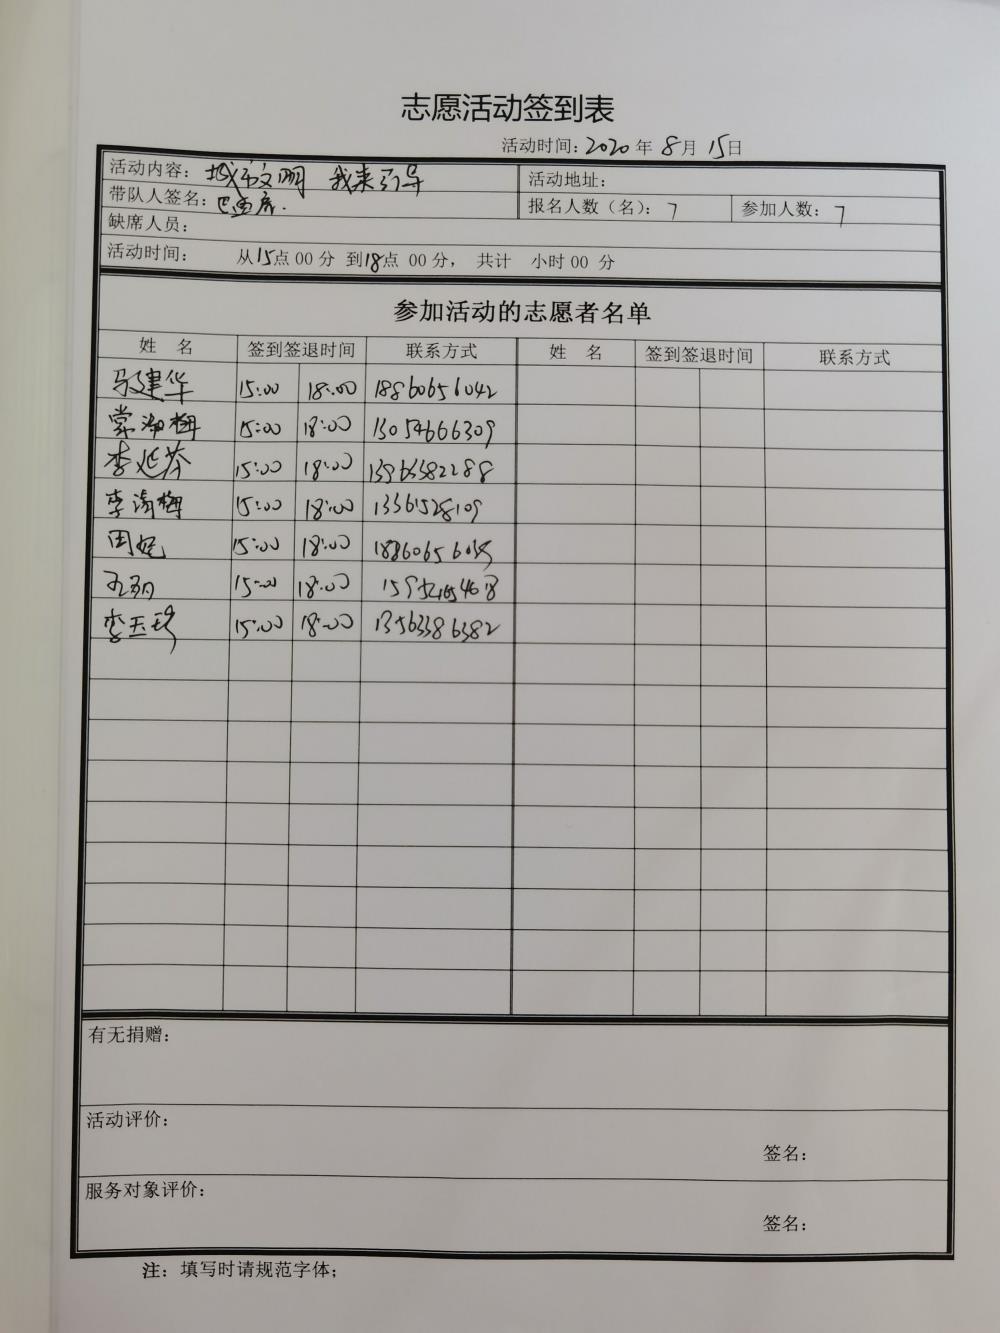 志愿活动签到表
活动时间: 2020 年 8 月 15 日
活动内容: 城市文明 我来引导 活动地址:
带队人签名: 报名人数（名）: 7 参加人数: 7
缺席人员:
活动时间: 从 15 点 00 分 到 18 点 00 分， 共计 小时 00 分
参加活动的志愿者名单
姓 名 签到签退时间 联系方式 姓 名 签到签退时间 联系方式
马建华 15:00 18:00 18860656042
常湘梅 15:00 18:00 13054666309
李延芬 15:00 18:00 13963382288
李清梅 15:00 18:00 13361528109
田妮 15:00 18:00
15:00 18:00
李玉珍 15:00 18:00 13563386382
有无捐赠:
活动评价:
签名:
服务对象评价:
签名:
注: 填写时请规范字体;